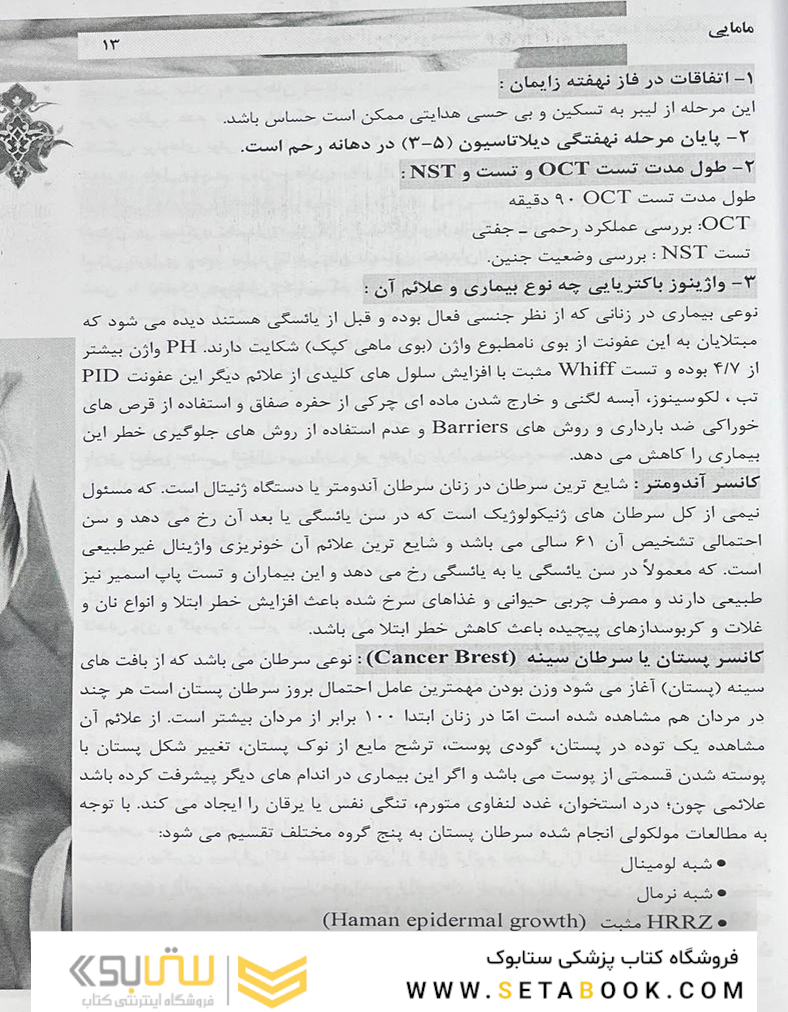 مامایی
۱۳
۱- اتفاقات در فاز نهفته زایمان :
این مرحله از لیبر به تسکین و بی حسی هدایتی ممکن است حساس باشد.
۲- پایان مرحله نهفتگی دیلاتاسیون (۵-۳) در دهانه رحم است.
۲- طول مدت تست OCT و تست و NST :
طول مدت تست OCT ۹۰ دقیقه
OCT: بررسی عملکرد رحمی ـ جفتی
تست NST : بررسی وضعیت جنین.
۳- واژینوز باکتریایی چه نوع بیماری و علائم آن :
نوعی بیماری در زنانی که از نظر جنسی فعال بوده و قبل از یائسگی هستند دیده می شود که
مبتلایان به این عفونت از بوی نامطبوع واژن (بوی ماهی کپک) شکایت دارند. PH واژن بیشتر
از ۴/۷ بوده و تست Whiff مثبت با افزایش سلول های کلیدی از علائم دیگر این عفونت PID
تب ، لکوسینوز، آبسه لگنی و خارج شدن ماده ای چرکی از حفره صفاق و استفاده از قرص های
خوراکی ضد بارداری و روش های Barriers و عدم استفاده از روش های جلوگیری خطر این
بیماری را کاهش می دهد.
کانسر آندومتر : شایع ترین سرطان در زنان سرطان آندومتر یا دستگاه ژنیتال است. که مسئول
نیمی از کل سرطان های ژنیکولوژیک است که در سن یائسگی یا بعد آن رخ می دهد و سن
احتمالی تشخیص آن ۶۱ سالی می باشد و شایع ترین علائم آن خونریزی واژینال غیرطبیعی
است. که معمولاً در سن یائسگی یا به یائسگی رخ می دهد و این بیماران و تست پاپ اسمیر نیز
طبیعی دارند و مصرف چربی حیوانی و غذاهای سرخ شده باعث افزایش خطر ابتلا و انواع نان و
غلات و کربوسدازهای پیچیده باعث کاهش خطر ابتلا می باشد.
کانسر پستان یا سرطان سینه (Cancer Brest) : نوعی سرطان می باشد که از بافت های
سینه (پستان) آغاز می شود وزن بودن مهمترین عامل احتمال بروز سرطان پستان است هر چند
در مردان هم مشاهده شده است امّا در زنان ابتدا ۱۰۰ برابر از مردان بیشتر است. از علائم آن
مشاهده یک توده در پستان، گودی پوست، ترشح مایع از نوک پستان، تغییر شکل پستان با
پوسته شدن قسمتی از پوست می باشد و اگر این بیماری در اندام های دیگر پیشرفت کرده باشد
علائمی چون؛ درد استخوان، غدد لنفاوی متورم، تنگی نفس یا یرقان را ایجاد می کند. با توجه
به مطالعات مولکولی انجام شده سرطان پستان به پنج گروه مختلف تقسیم می شود:
• شبه لومینال
• شبه نرمال
• HRRZ مثبت (Haman epidermal growth)
فروشگاه کتاب پزشکی ستابوک
WWW.SETABOOK.COM
ستابوک
فروشگاه اینترنتی کتاب